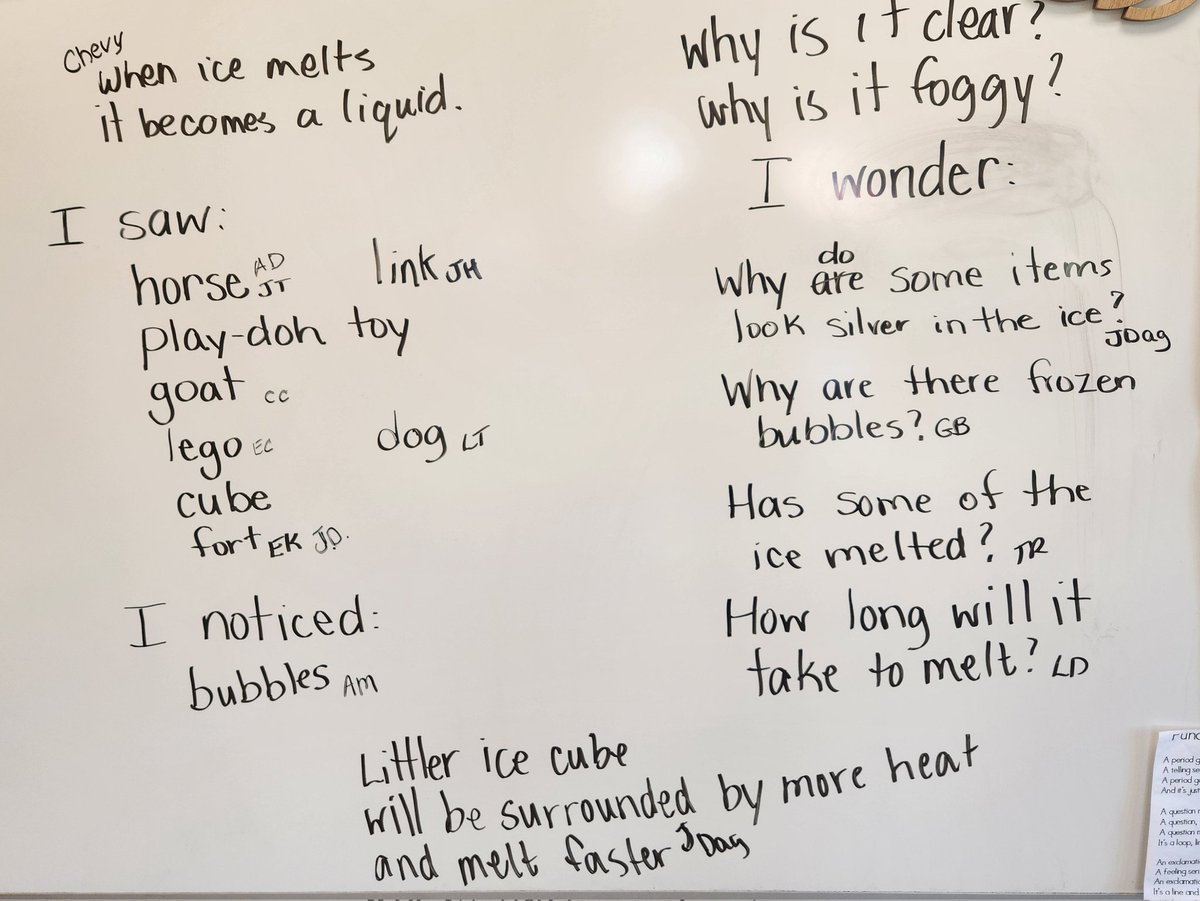 Chevy
when ice melts
it becomes a liquid.
I saw:
horse AD JT link JH
play-doh toy
goat CC
lego EC dog LT
cube
fort EK J.D.
I noticed:
bubbles Am
why is it clear?
why is it foggy?
I wonder:
Why are do some items
look silver in the ice?
JDag
Why are there frozen
bubbles? GB
Has some of the
ice melted? JR
How long will it
take to melt? LD
Littler ice cube
will be surrounded by more heat
and melt faster JDag
A period g
A telling se
A period g
And it's just
A question
A question,
A question
It's a loop, li
An exclamati
A feeling sen
An exclamati
It's a line and